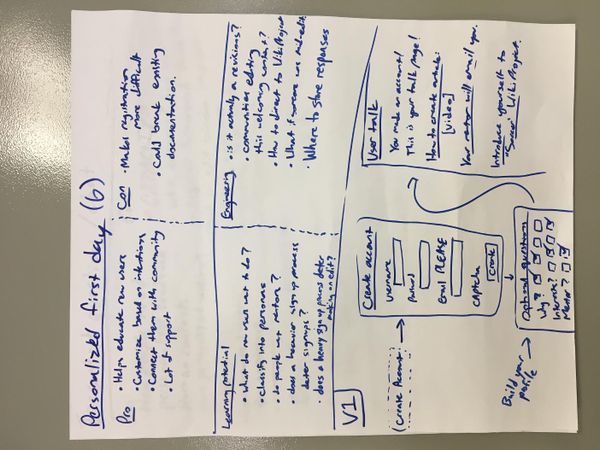 Personalized first day (6)
Pro
• Helps educate new users
• Customize based on intentions
• Connect them with community
• Lot of support
Con
• Makes registration
more difficult
• Could break existing
documentation.
Learning potential
• What do new users want to do?
• Classify into personas
• Do people want mentors?
• does a heavier signup process
deter signups?
• does a heavy sign up process deter
making an edit?
Engineering
• is it actually a revisions?
• Communities editing
this welcoming content?
• How to direct to WikiProject
• What if someone was mid-edit
• Where to store responses
V1
(Create Account)
Create account
username
Email PLEASE
captcha
Create
Build your
profile
Optional questions
Why?
Interests?
Mentor?
User talk
You made an account!
This is your talk page!
How to create article:
[video]
Your mentor will email you.
Introduce yourself to
"Soccer" WikiProject.